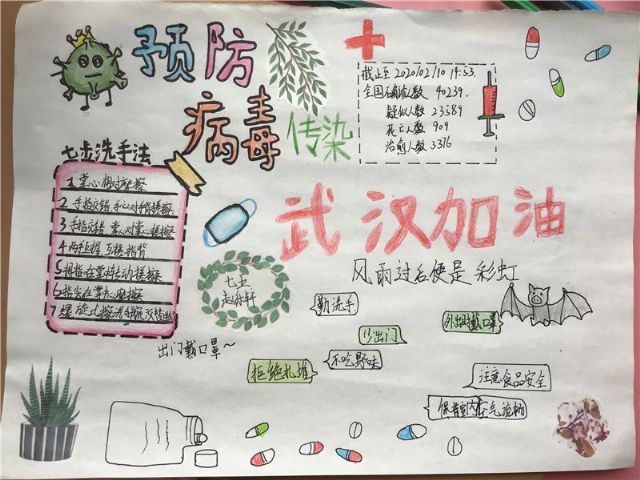 预防
病毒
传染
截止至 2020/02/10 14:53.
全国确诊人数 40239.
疑似人数 23589
死亡人数 909
治愈人数 3316
七步洗手法
1 掌心相对揉搓
2 手指交错 手心对手背揉搓
3 手指交错 掌心对掌心揉搓
4 两手互握 互揉指背
5 拇指在掌中转动揉搓
6 指尖在掌心揉搓
武汉加油
风雨过后便是 彩虹
七5
勤洗手
少出门
外出时戴口罩
不吃野味
出门戴口罩~
拒绝扎堆
注意食品安全
保普室内空气流畅